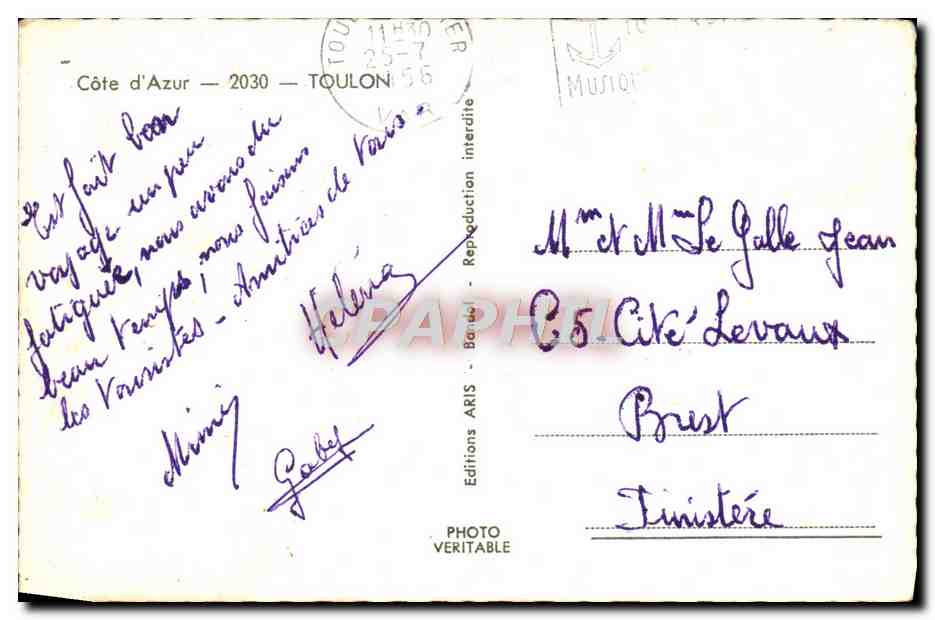 Côte d'Azur — 2030 — TOULON
Est fait bon
voyage un peu
fatiguée, nous avons du
beau temps, nous faisons
les touristes - Amitiées de tous -
Héléna
Mimi
Gaby
11H30
25-7
MUSIQU
Editions ARIS - Bandol - Reproduction interdite
PHOTO
VERITABLE
Mm et Mm Le Galle Jean
C5. Cité Levaux
Brest
Finistére
CPAPHIL